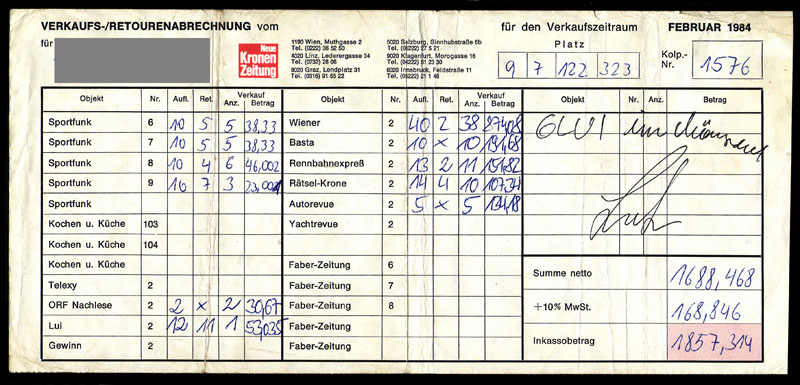 VERKAUFS-/RETOURENABRECHNUNG vom
für den Verkaufszeitraum FEBRUAR 1984
für
Neue Kronen Zeitung
1190 Wien, Muthgasse 2
Tel. (0222) 36 52 50
4020 Linz, Lederergasse 34
Tel. (0732) 28 06
8020 Graz, Lendplatz 31
Tel. (0316) 91 55 22
5020 Salzburg, Sinnhubstraße 6b
Tel. (06222) 27 5 21
9020 Klagenfurt, Morogasse 16
Tel. (04222) 51 23 30
6020 Innsbruck, Feldstraße 11
Tel. (05222) 21 1 48
Platz
9 7 122 323
Kolp.-Nr. 1576
Objekt Nr. Aufl. Ret. Verkauf Anz. Betrag
Sportfunk 6 10 5 5 38,33
Sportfunk 7 10 5 5 38,33
Sportfunk 8 10 4 6 46,002
Sportfunk 9 10 7 3 23,001
Sportfunk
Kochen u. Küche 103
Kochen u. Küche 104
Kochen u. Küche
Telexy 2
ORF Nachlese 2 2 x 2 30,67
Lui 2 12 11 1 53,035
Gewinn 2
Objekt Nr. Aufl. Ret. Verkauf Anz. Betrag
Wiener 2 40 2 38 874,08
Basta 2 10 x 10 131,68
Rennbahnexpreß 2 13 2 11 151,82
Rätsel-Krone 2 14 4 10 107,34
Autorevue 2 5 x 5 134,18
Yachtrevue 2
Faber-Zeitung 6
Faber-Zeitung 7
Faber-Zeitung 8
Faber-Zeitung
Faber-Zeitung
Objekt Nr. Anz. Betrag
im
Summe netto 1688,468
+10% MwSt. 168,846
Inkassobetrag 1857,314